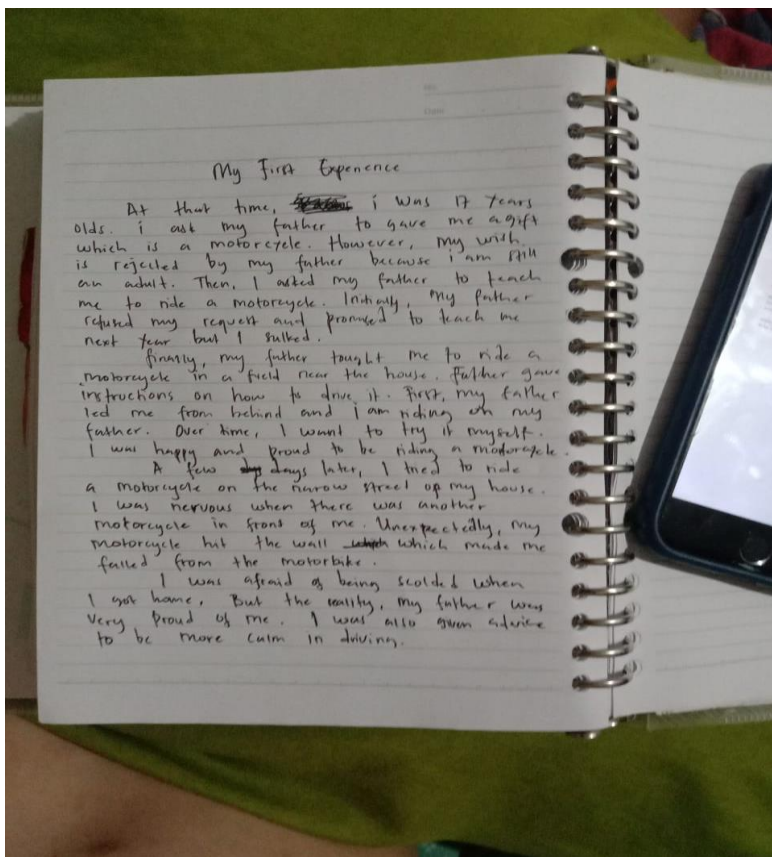 My First Experience
At that time, i was 17 years
olds. i ask my father to gave me a gift
which is a motorcycle. However, my wish
is rejected by my father because i am still
an adult. Then, I asked my father to teach
me to ride a motorcycle. Initially, my father
refused my request and promised to teach me
next year but I sulked.
finally, my father tought me to ride a
motorcycle in a field near the house. Father gave
instructions on how to drive it. First, my father
led me from behind and i am riding on my
father. Over time, I want to try it myself.
I was happy and proud to be riding a motorcycle.
A few days later, I tried to ride
a motorcycle on the narrow street of my house.
I was nervous when there was another
motorcycle in front of me. Unexpectedly, my
motorcycle hit the wall which made me
falled from the motorbike.
I was afraid of being scolded when
I got home, But the reality, my father was
very proud of me. I was also given advice
to be more calm in driving.